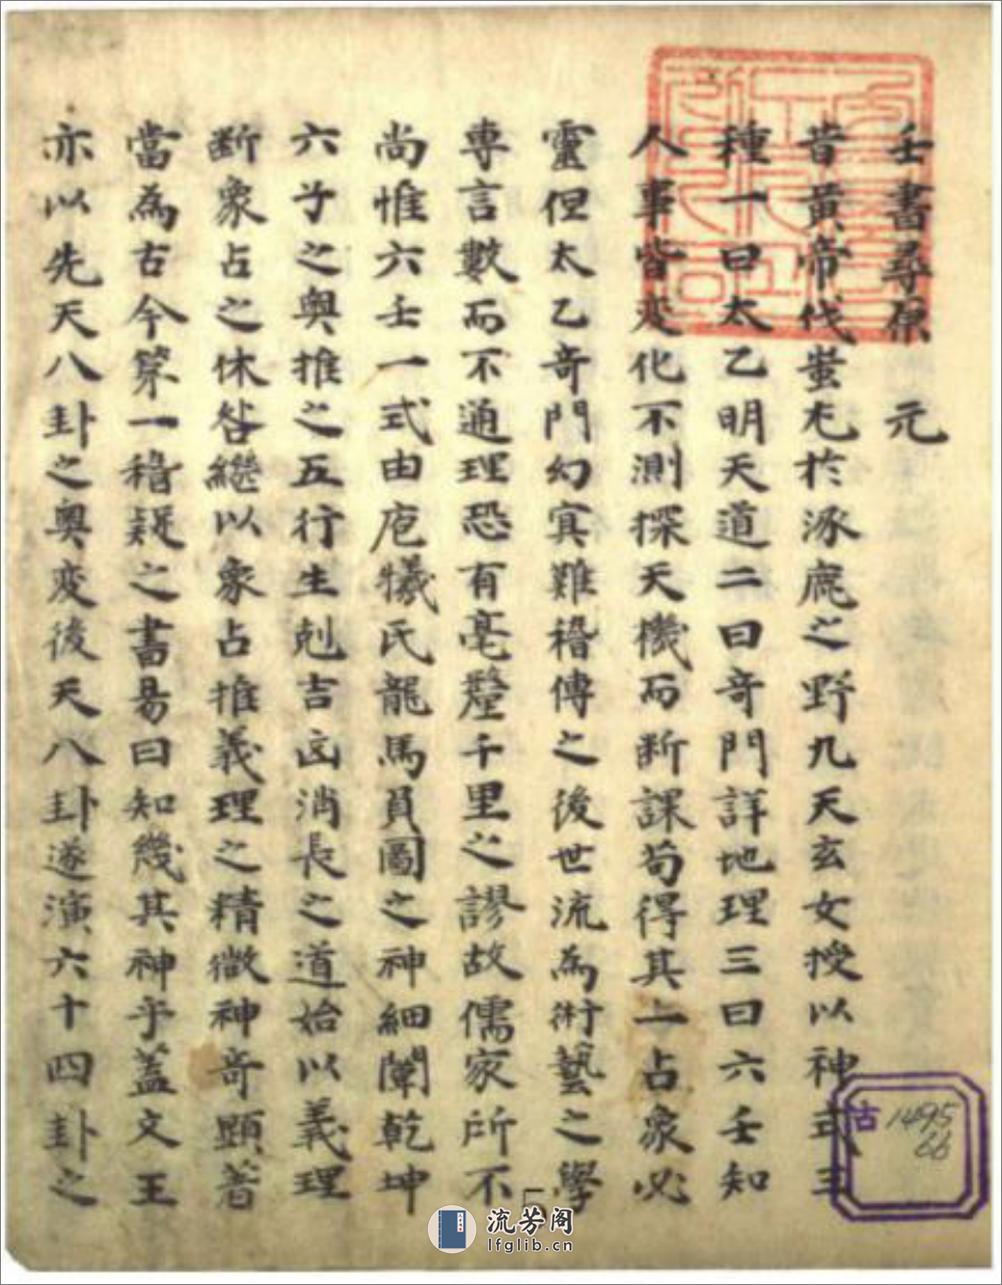 壬書尋原　元
昔黃帝伐蚩尤於涿鹿之野九天玄女授以神式三
種一曰太乙明天道二曰奇門詳地理三曰六壬知
人事皆変化不測探天機而断課苟得其一占象必
靈但太乙奇門幻寘難稽傳之後世流為術藝之學
專言數而不通理恐有毫釐千里之謬故儒家所不
尚惟六壬一式由庖犧氏龍馬負圖之神細闡乾坤
六子之奥推之五行生尅吉凶消長之道始以義理
断象占之休咎繼以象占推義理之精微神奇顕著
當為古今第一稽疑之書易曰知幾其神乎蓋文王
亦以先天八卦之奥変後天八卦遂演六十四卦之
古 1495
66
流芳阁
lfglib.cn